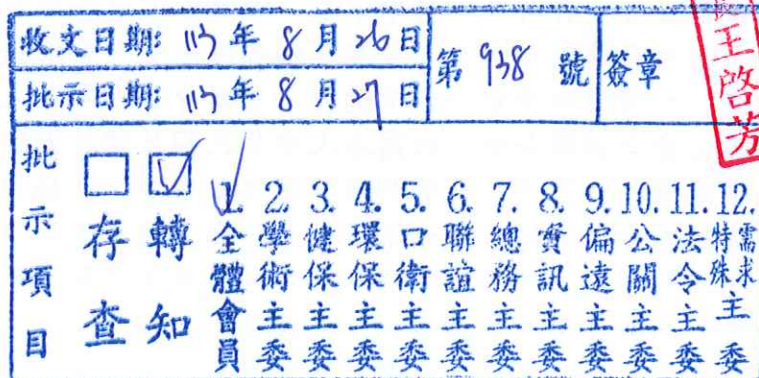 收文日期: 113年8月26日
第938號
簽章
批示日期: 113年8月27日
王啓芳
批示項目
存查
轉知
1.全體會員
2.學術主委
3.健保主委
4.環保主委
5.口衛主委
6.聯誼主委
7.總務主委
8.資訊主委
9.偏遠主委
10.公關主委
11.法令主委
12.特殊需求主委